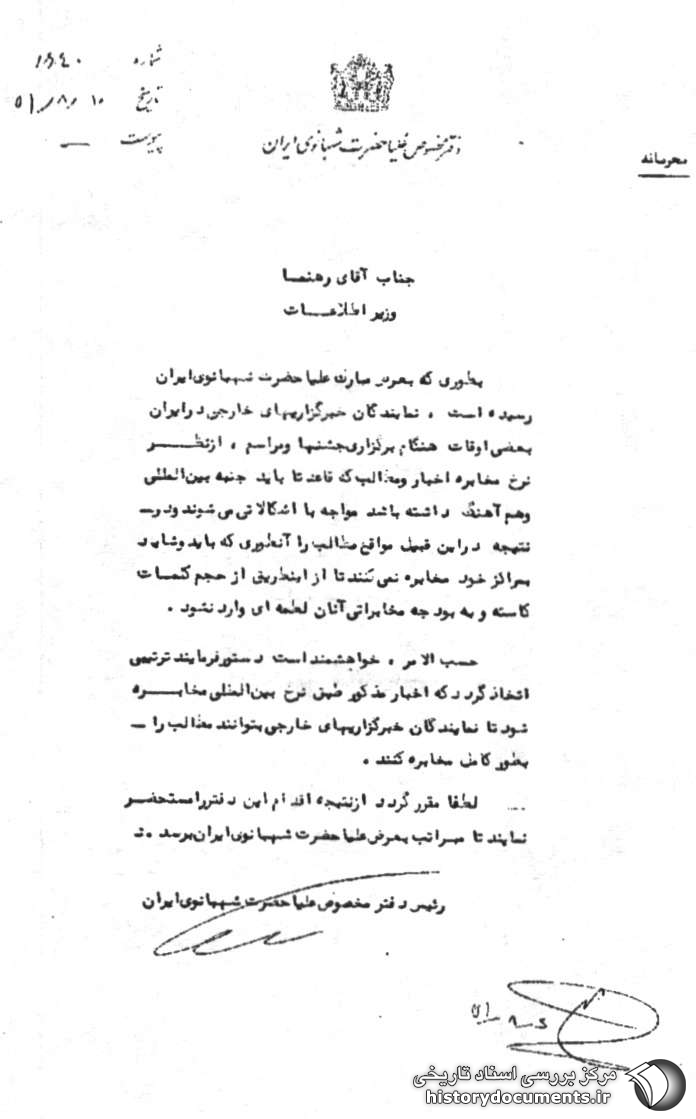 شماره ۱۶۴۰
تاریخ ۱۰ر۸ر۵۱
پیوست —
دفتر مخصوص علیاحضرت شهبانوی ایران
محرمانه
جناب آقای رهنما
وزیر اطلاعات
بطوری که بعرض مبارک علیاحضرت شهبانوی ایران
رسیده است ، نمایندگان خبرگزاریهای خارجی در ایران
بعضی اوقات هنگام برگزاری جشنها ومراسم ، ازنظر
نرخ مخابره اخبار ومطالب که قاعدتا باید جنبه بین‌المللی
وهم‌آهنگ داشته باشد مواجه با اشکالاتی می‌شوند ودر
نتیجه در این قبیل مواقع مطالب را آنطوری که باید وشاید
بمراکز خود مخابره نمی‌کنند تا از اینطریق از حجم کلمات
کاسته و به بودجه مخابراتی آنان لطمه ای وارد نشود .
حسب الامر ، خواهشمند است دستور فرمایند ترتیبی
اتخاذ گردد که اخبار مذکور طبق نرخ بین‌المللی مخابره
شود تا نمایندگان خبرگزاریهای خارجی بتوانند مطالب را
بطور کامل مخابره کنند .
لطفا مقرر گردد ازنتیجه اقدام این دفتررا مستحضر
نمایند تا مراتب بعرض علیاحضرت شهبانوی ایران برسد .
رئیس دفتر مخصوص علیاحضرت شهبانوی ایران
مرکز بررسی اسناد تاریخی
historydocuments.ir